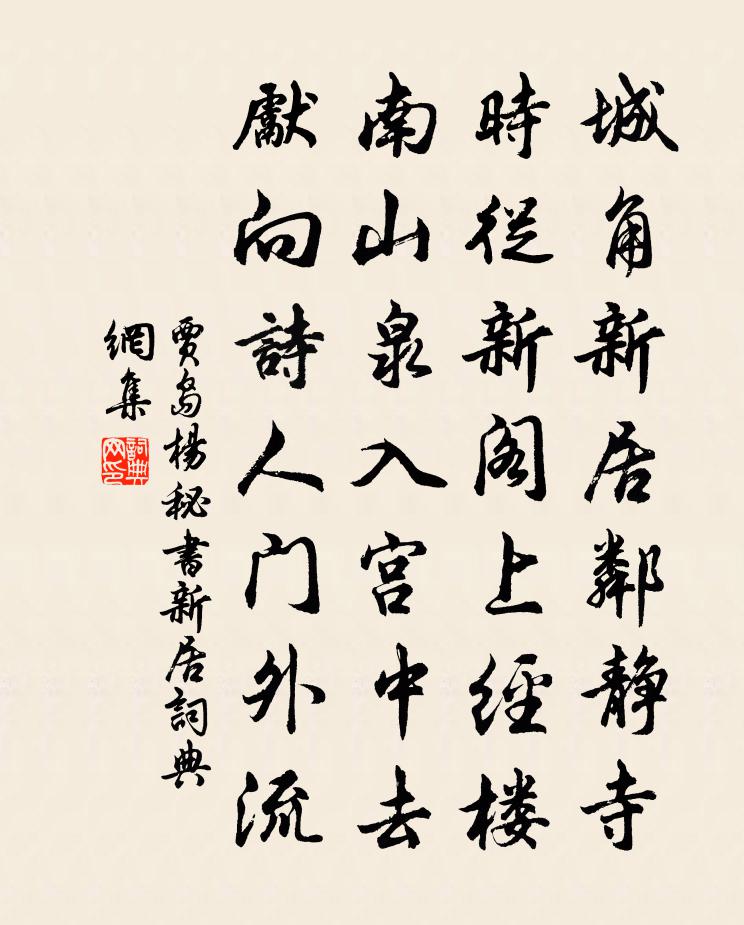 城角新居鄰静寺
時從新阁上經楼
南山泉入宫中去
獻向詩人门外流
賈島楊秘書新居詞典
網集
詞典網印